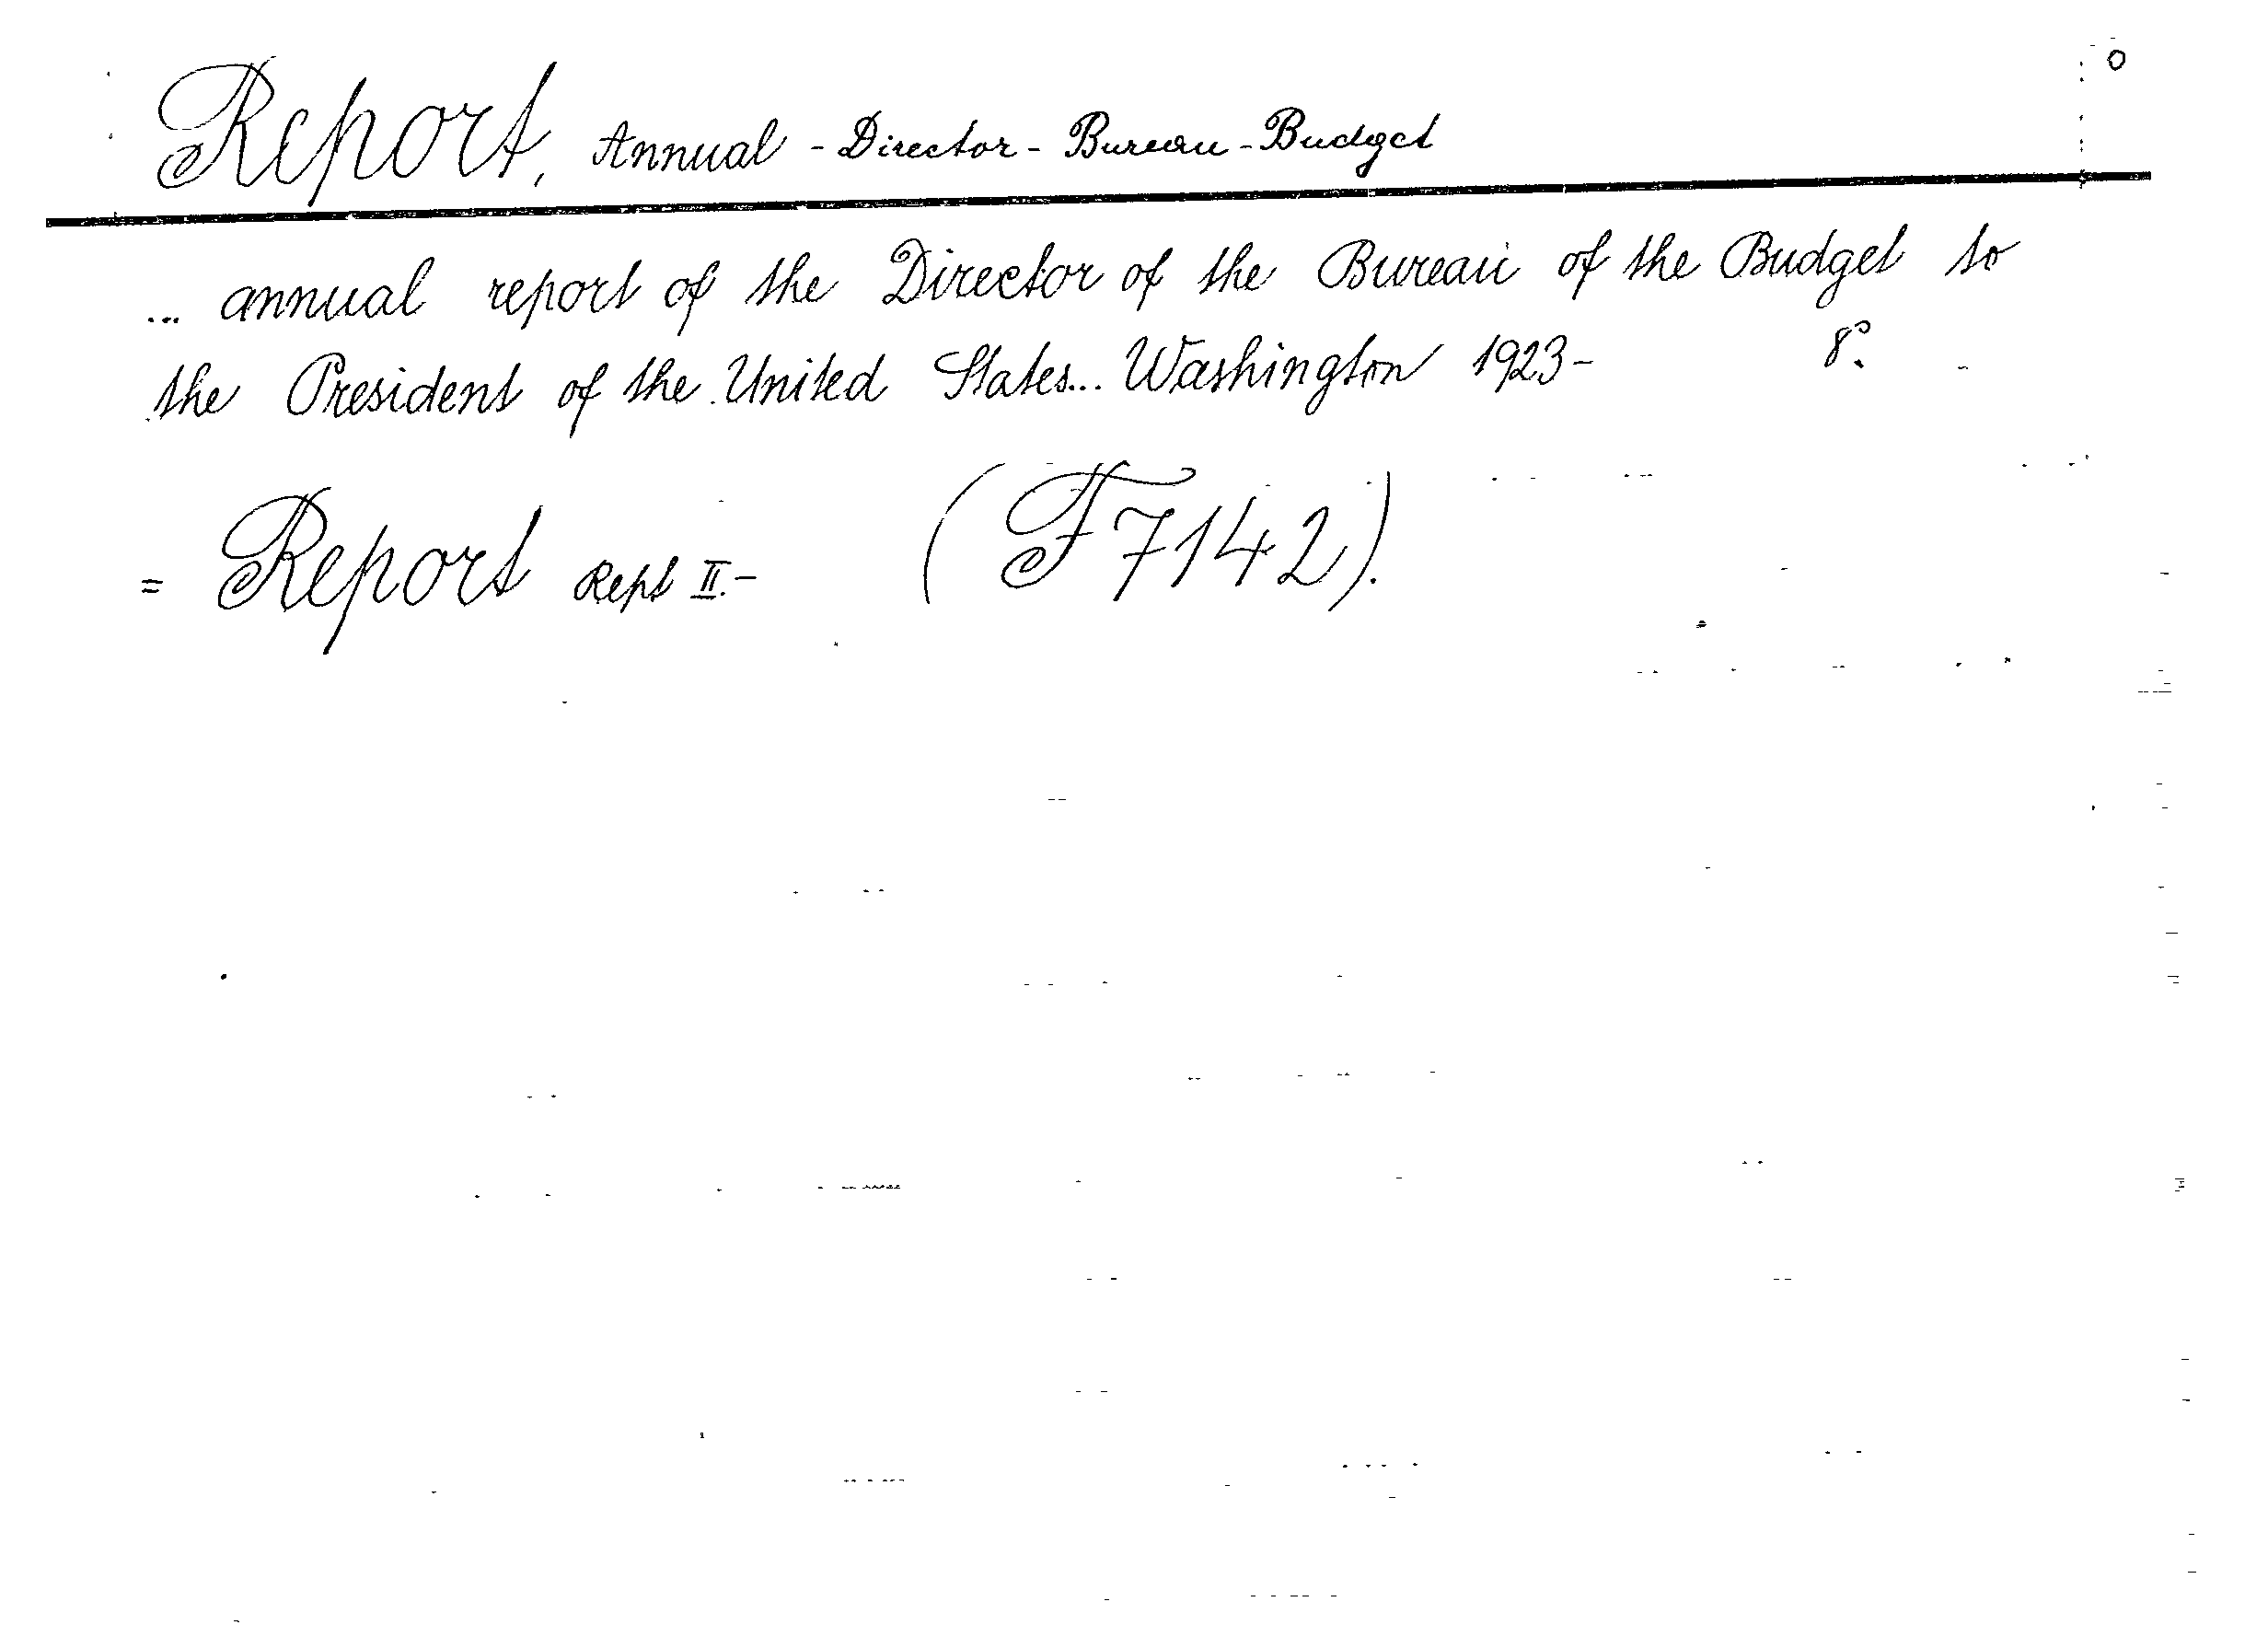 Report, Annual - Director - Bureau - Budget
... annual report of the Director of the Bureau of the Budget to
the President of the United States... Washington 1923- 8°.
= Report Rept II.- (F7142).